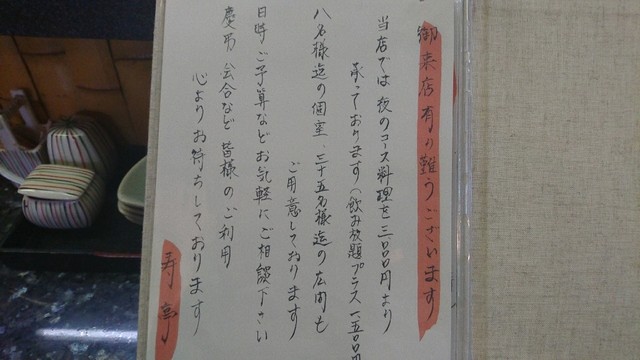 御来店有り難うございます
当店では夜のコース料理を三〇〇〇円より
承っております(飲み放題プラス一、五〇〇円
八名様迄の個室、三十五名様迄の広間も
ご用意しております
日時ご予算などお気軽にご相談下さい
慶弔、会合など皆様のご利用
心よりお待ちしております
寿亭